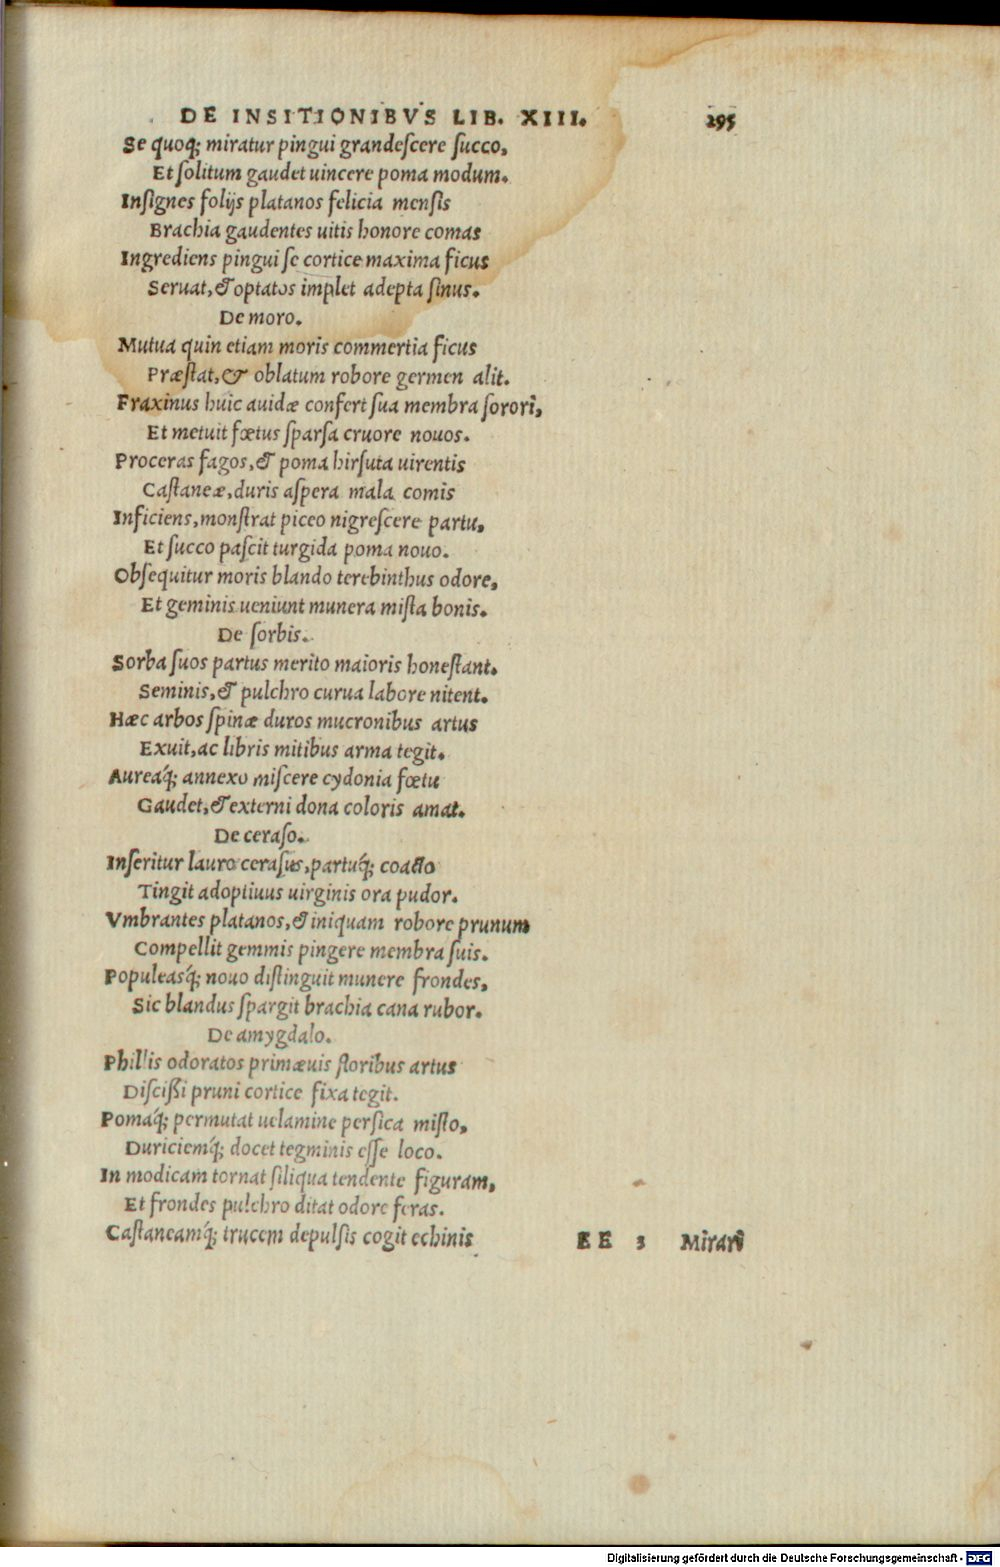 DE INSITIONIBVS LIB. XIII. 295
Se quoq; miratur pingui grandeſcere ſucco,
Et ſolitum gaudet uincere poma modum.
Inſignes folijs platanos felicia menſis
Brachia gaudentes uitis honore comas
Ingrediens pingui ſe cortice maxima ficus
Seruat, & optatos implet adepta ſinus.
De moro.
Mutua quin etiam moris commertia ficus
Præſtat, & oblatum robore germen alit.
Fraxinus huic auidæ confert ſua membra ſorori,
Et metuit fœtus ſparſa cruore nouos.
Proceras fagos, & poma hirſuta uirentis
Caſtaneæ, duris aſpera mala comis
Inficiens, monſtrat piceo nigreſcere partu,
Et ſucco paſcit turgida poma nouo.
Obſequitur moris blando terebinthus odore,
Et geminis ueniunt munera miſta bonis.
De ſorbis.
Sorba ſuos partus merito maioris honeſtant.
Seminis, & pulchro curua labore nitent.
Hæc arbos ſpinæ duros mucronibus artus
Exuit, ac libris mitibus arma tegit.
Aureaq́; annexo miſcere cydonia fœtu
Gaudet, & externi dona coloris amat.
De ceraſo.
Inſeritur lauro ceraſus, partuq́; coacto
Tingit adoptiuus uirginis ora pudor.
Vmbrantes platanos, & iniquam robore prunum
Compellit gemmis pingere membra ſuis.
Populeasq́; nouo diſtinguit munere frondes,
Sic blandus ſpargit brachia cana rubor.
De amygdalo.
Phillis odoratos primæuis floribus artus
Diſciſſi pruni cortice fixa tegit.
Pomaq́; permutat uelamine perſica miſto,
Duriciemq́; docet tegminis eſſe loco.
In modicam tornat ſiliqua tendente figuram,
Et frondes pulchro ditat odore feras.
Caſtaneamq́; trucem depulſis cogit echinis
EE 3 Mirari
Digitalisierung gefördert durch die Deutsche Forschungsgemeinschaft - DFG